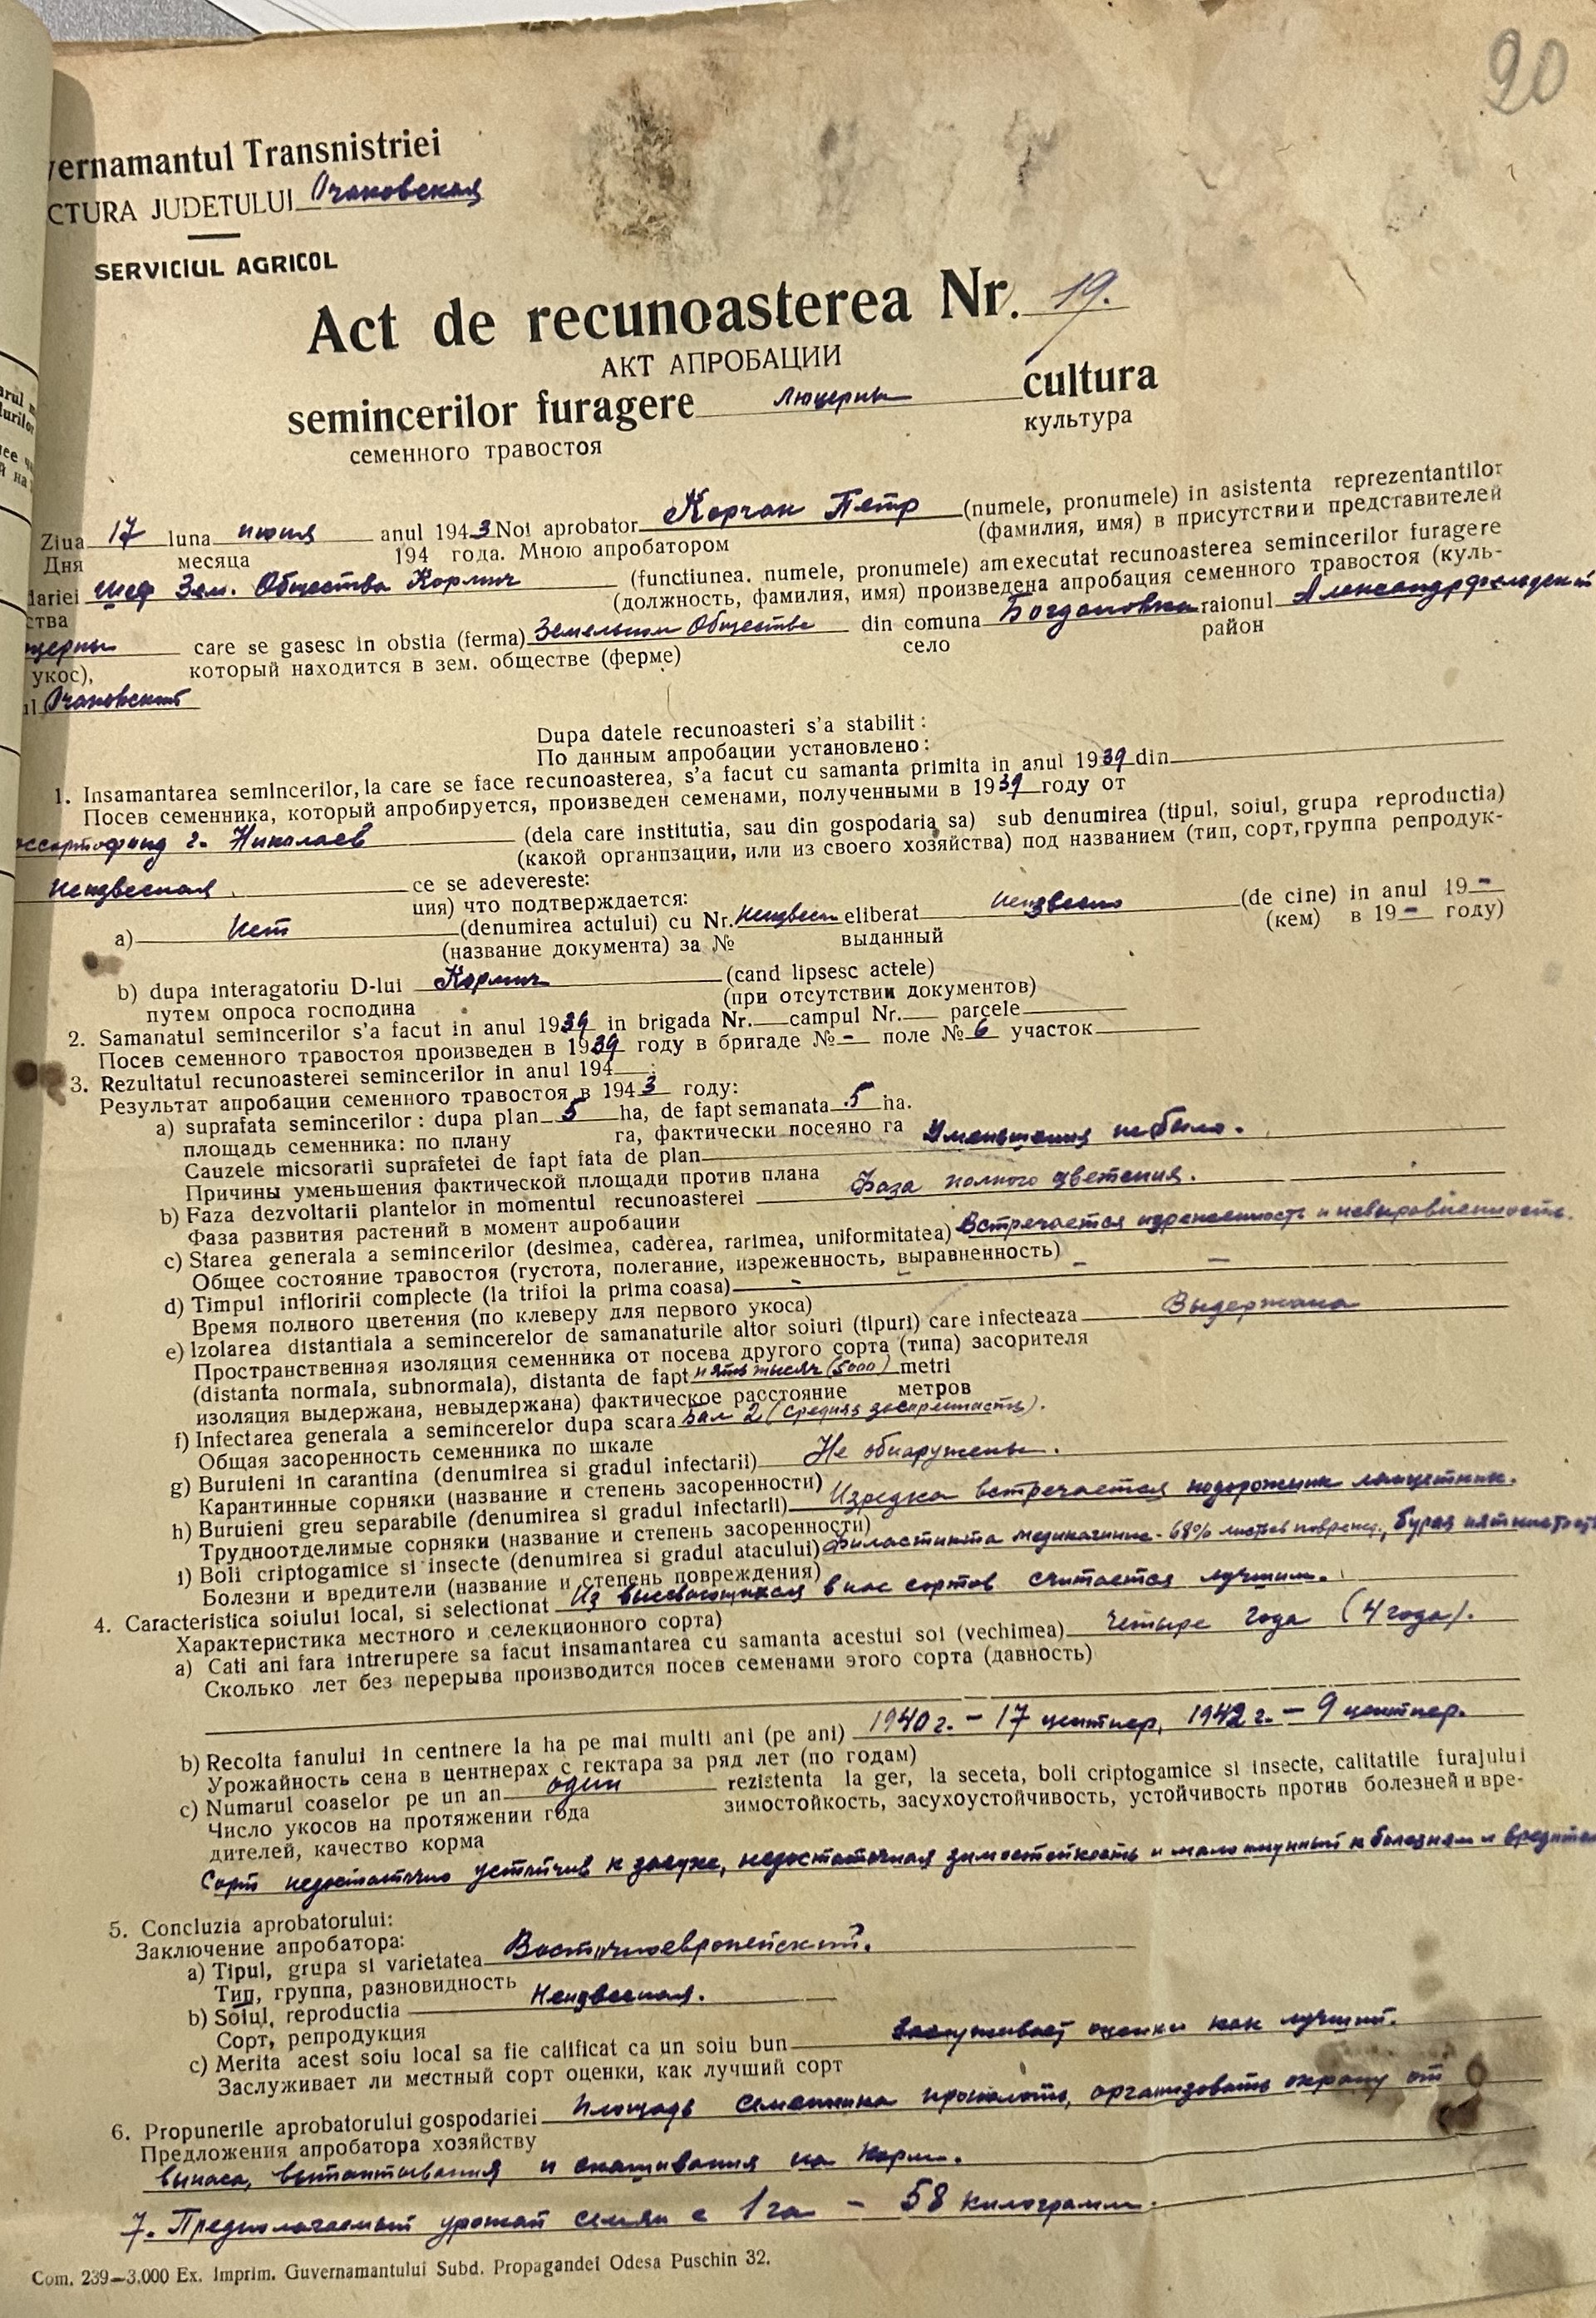 20
vernamantul Transnistriei
CTURA JUDETULUI Очаковская
SERVICIUL AGRICOL
Act de recunoasterea Nr. 19.
АКТ АПРОБАЦИИ
semincerilor furagere люцерны cultura
семенного травостоя культура
Ziua 17 luna июня anul 1943 Noi aprobator Корчак Петр (numele, pronumele) in asistenta reprezentantilor
Дня месяца 194 года. Мною апробатором (фамилия, имя) в присутствии представителей
dariei шеф Зем. Общества Кормич (functiunea. numele, pronumele) am executat recunoasterea semincerilor furagere
ства (должность, фамилия, имя) произведена апробация семенного травостоя (куль-
церны care se gasesc in obstia (ferma) Земельном Обществе din comuna Богдановка raionul Александрфельдский
укос), который находится в зем. обществе (ферме) село район
ul Очаковский
Dupa datele recunoasteri s'a stabilit:
По данным апробации установлено:
1. Insamantarea semincerilor, la care se face recunoasterea, s'a facut cu samanta primita in anul 1939 din
Посев семенника, который апробируется, произведен семенами, полученными в 1939 году от
оссортофонд г. Николаев (dela care institutia, sau din gospodaria sa) sub denumirea (tipul, soiul, grupa reproductia)
(какой организации, или из своего хозяйства) под названием (тип, сорт, группа репродук-
неизвесная ce se adevereste:
ция) что подтверждается:
a) Нет (denumirea actului) cu Nr. неизвесн eliberat неизвесно (de cine) in anul 19-
(название документа) за № выданный (кем) в 19- году)
b) dupa interagatoriu D-lui Кормич (cand lipsesc actele)
путем опроса господина (при отсутствии документов)
2. Samanatul semincerilor s'a facut in anul 1939 in brigada Nr. campul Nr. parcele
Посев семенного травостоя произведен в 1939 году в бригаде № - поле № 6 участок
3. Rezultatul recunoasterei semincerilor in anul 194 :
Результат апробации семенного травостоя в 1943 году:
a) suprafata semincerilor: dupa plan 5 ha, de fapt semanata 5 ha.
площадь семенника: по плану га, фактически посеяно га
Cauzele micsorarii suprafetei de fapt fata de plan Уменьшения не было.
Причины уменьшения фактической площади против плана
b) Faza dezvoltarii plantelor in momentul recunoasterei Фаза полного цветения.
Фаза развития растений в момент апробации
c) Starea generala a semincerilor (desimea, caderea, rarimea, uniformitatea) Встречается изреженность и невыровненность.
Общее состояние травостоя (густота, полегание, изреженность, выравненность)
d) Timpul infloririi complecte (la trifoi la prima coasa) -
Время полного цветения (по клеверу для первого укоса)
e) Izolarea distantiala a semincerelor de samanaturile altor soiuri (tipuri) care infecteaza Выдержана
Пространственная изоляция семенника от посева другого сорта (типа) засорителя
(distanta normala, subnormala), distanta de fapt пять тысяч (5000) metri
изоляция выдержана, невыдержана) фактическое расстояние метров
f) Infectarea generala a semincerelor dupa scara Бал 2 (средняя засоренность).
Общая засоренность семенника по шкале
g) Buruieni in carantina (denumirea si gradul infectarii) Не обнаружены.
Карантинные сорняки (название и степень засоренности)
h) Buruieni greu separabile (denumirea si gradul infectarii) Изредка встречается подорожник ланцетник.
Трудноотделимые сорняки (название и степень засоренности)
i) Boli criptogamice si insecte (denumirea si gradul atacului) 68% листьев поврежд., бурая пятнистость
Болезни и вредители (название и степень повреждения)
4. Caracteristica soiului local, si selectionat Из высевающихся в нас сортов считается лучшим.
Характеристика местного и селекционного сорта)
a) Cati ani fara intrerupere sa facut insamantarea cu samanta acestui soi (vechimea) Четыре года (4 года).
Сколько лет без перерыва производится посев семенами этого сорта (давность)
b) Recolta fanului in centnere la ha pe mai multi ani (pe ani) 1940 г. - 17 центнер, 1942 г. - 9 центнер.
Урожайность сена в центнерах с гектара за ряд лет (по годам)
c) Numarul coaselor pe un an один rezistenta la ger, la seceta, boli criptogamice si insecte, calitatile furajului
Число укосов на протяжении года зимостойкость, засухоустойчивость, устойчивость против болезней и вре-
дителей, качество корма
Сорт недостаточно устойчив к засухе, недостаточная зимостойкость и мало имунный к болезням и вредител
5. Concluzia aprobatorului:
Заключение апробатора:
a) Tipul, grupa si varietatea Восточноевропейский.
Тип, группа, разновидность
b) Soiul, reproductia Неизвесная.
Сорт, репродукция
c) Merita acest soiu local sa fie calificat ca un soiu bun Заслуживает оценки как лучший.
Заслуживает ли местный сорт оценки, как лучший сорт
6. Propunerile aprobatorului gospodariei Площадь семенника прополоть, организовать охрану от
Предложения апробатора хозяйству
выпаса, вытаптывания и скашивания на корм.
7. Предполагаемый урожай семян с 1 га - 58 килограмм.
Com. 239—3.000 Ex. Imprim. Guvernamantului Subd. Propagandei Odesa Puschin 32.